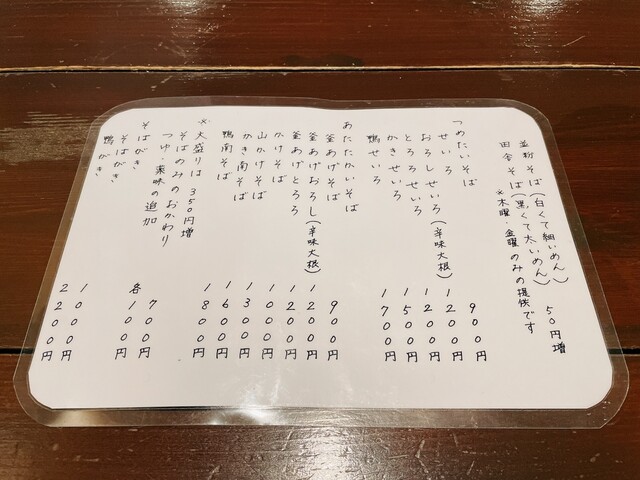 並粉そば(白くて細いめん)　50円増
田舎そば(黒くて太いめん)
※木曜・金曜のみの提供です
つめたいそば
せいろ　900円
おろしせいろ(辛味大根)　1200円
とろろせいろ　1200円
かきせいろ　1500円
鴨せいろ　1700円
あたたかいそば
釜あげそば　900円
釜あげおろし(辛味大根)　1200円
釜あげとろろ　1200円
かけそば　1000円
山かけそば　1300円
かき南そば　1600円
鴨南そば　1800円
※大盛りは 350円増
そばのみのおかわり　700円
つゆ・薬味の追加　各100円
そばがき
そばがき　1000円
鴨がき　2200円